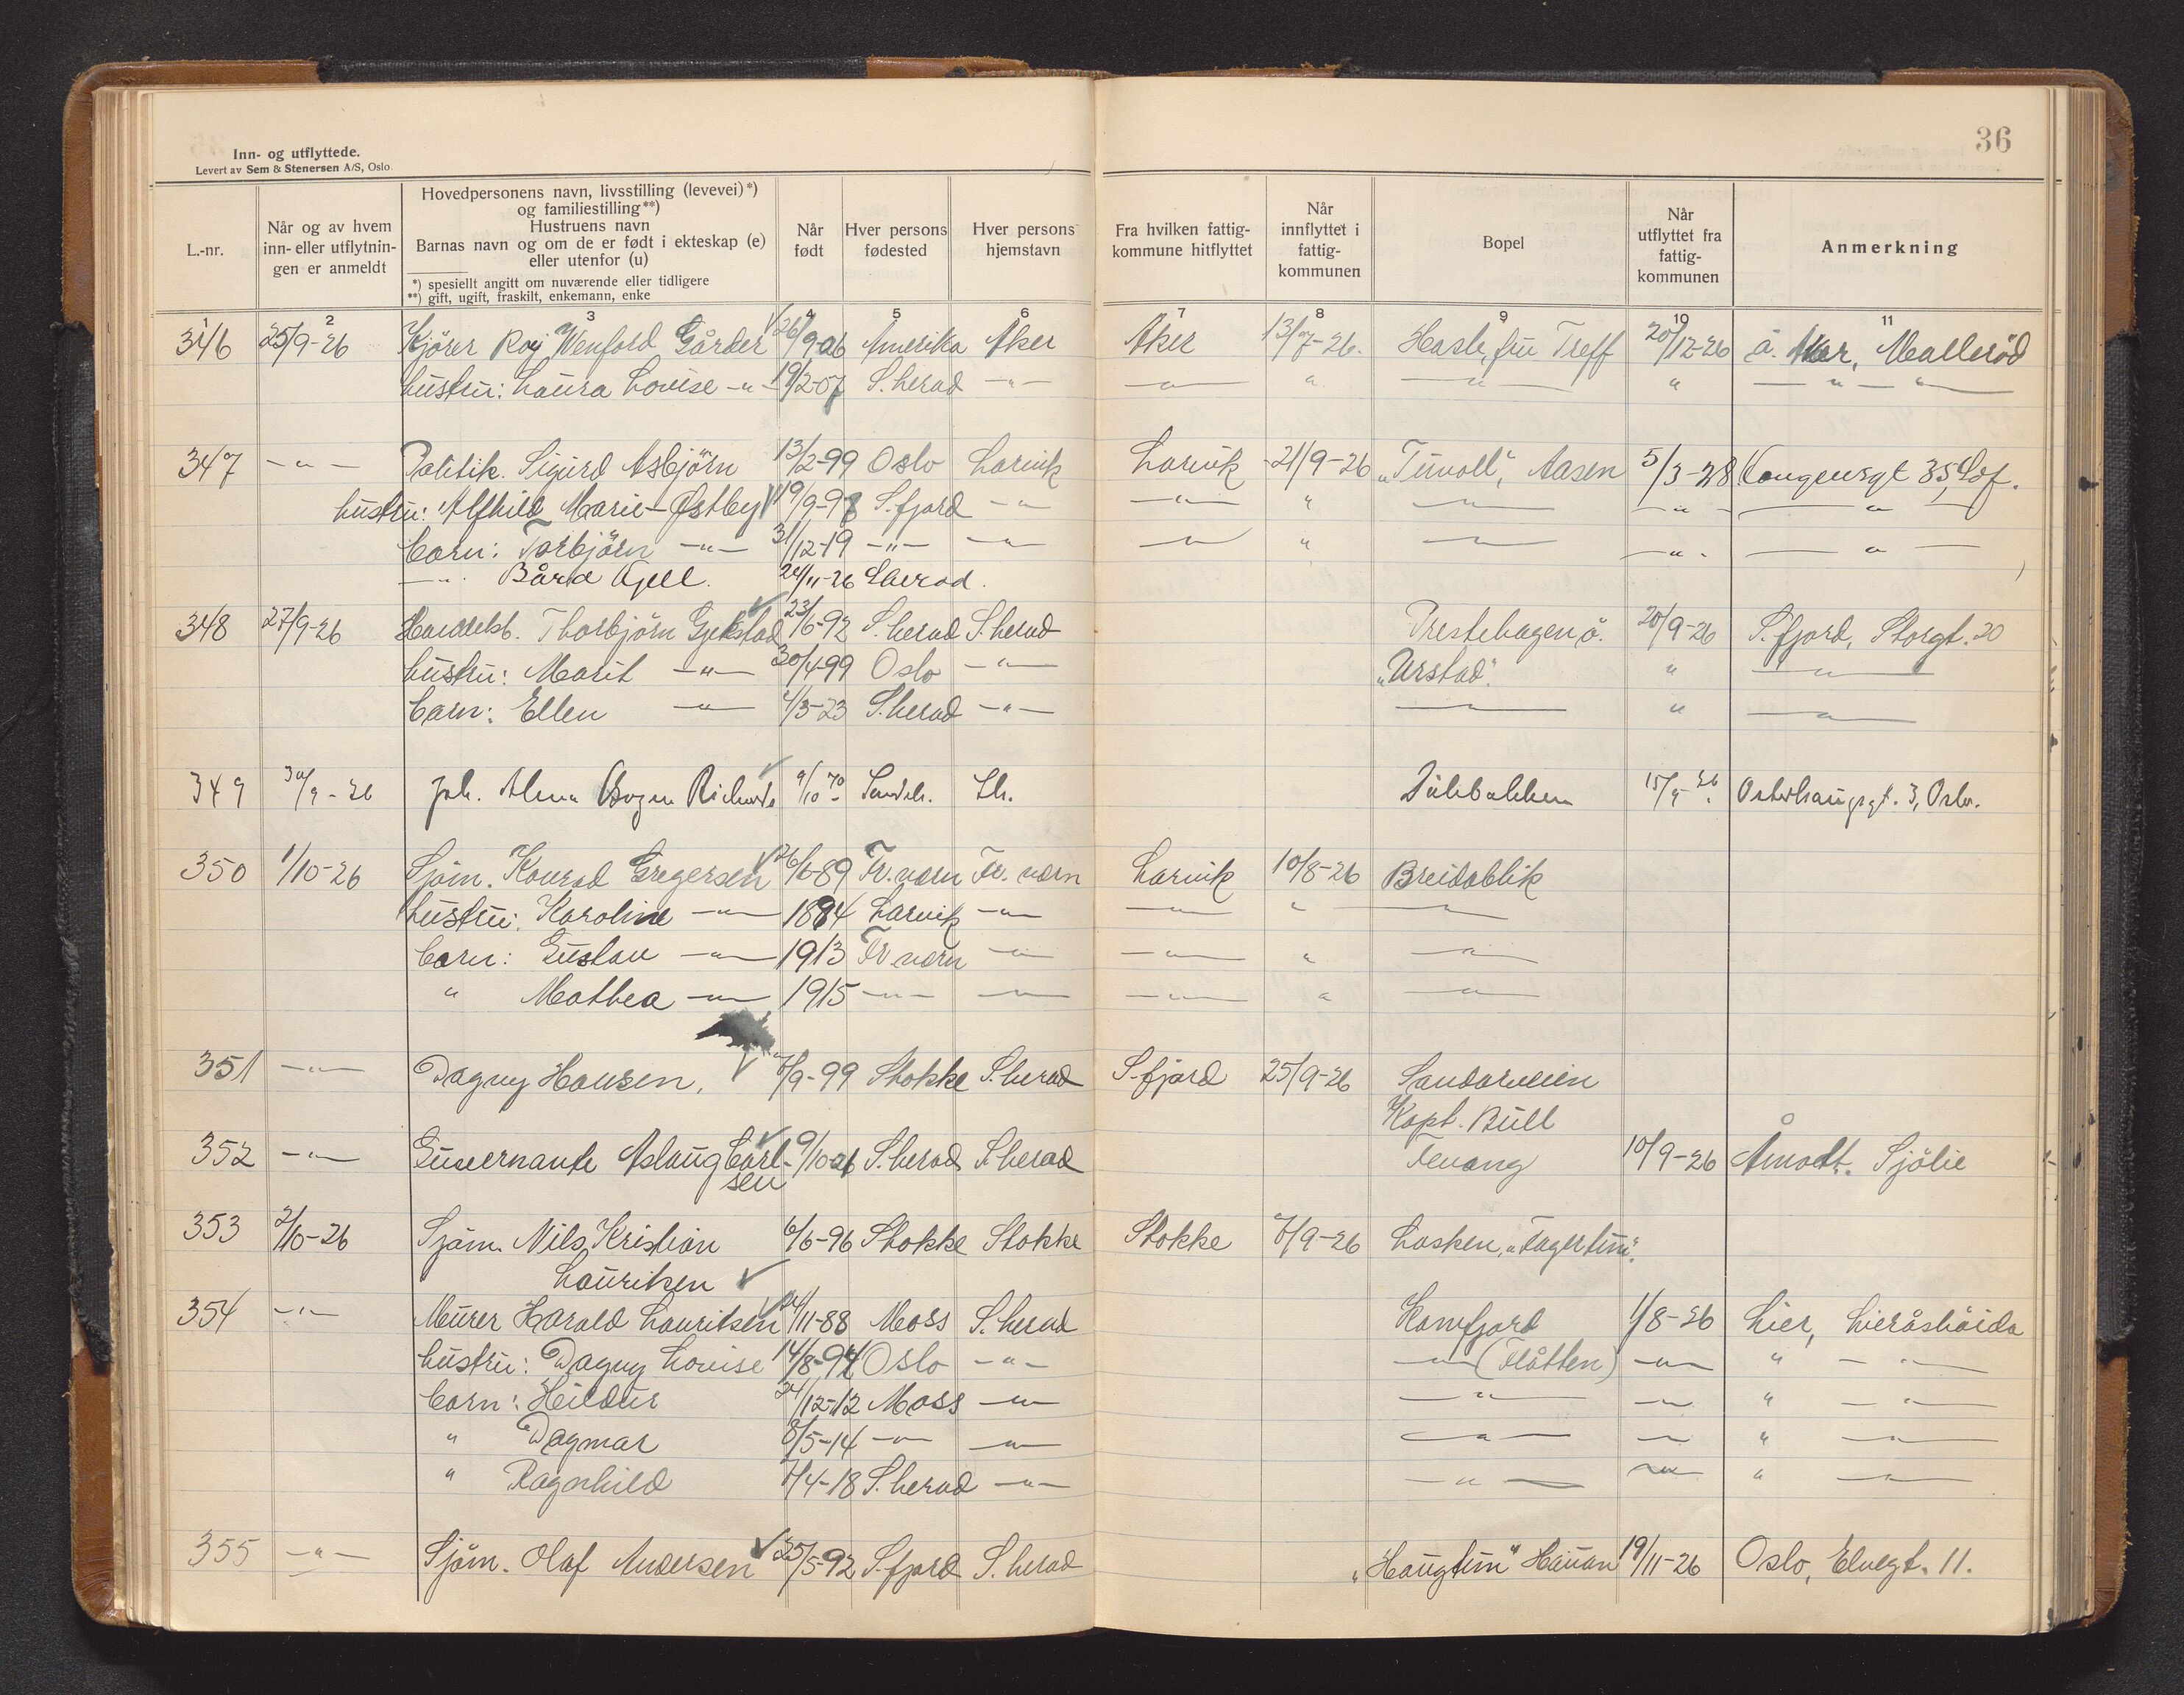 36
Inn- og utflyttede.
Levert av Sem & Stenersen A/S, Oslo.
L.-nr.
Når og av hvem inn- eller utflytnin-gen er anmeldt
Hovedpersonens navn, livsstilling (levevei)*)
og familiestilling**)
Hustruens navn
Barnas navn og om de er født i ekteskap (e)
eller utenfor (u)
*) spesiellt angitt om nuværende eller tidligere
**) gift, ugift, fraskilt, enkemann, enke
Når født
Hver persons fødested
Hver persons hjemstavn
Fra hvilken fattig-kommune hitflyttet
Når innflyttet i fattig-kommunen
Bopel
Når utflyttet fra fattig-kommunen
Anmerkning
1 2 3 4 5 6 7 8 9 10 11
346 25/9-26 Kjörer Roy Wenford Gårder 26/9-06 Amerika Aker Aker 13/7-26. Hasle, fru Treff 20/12-26 Ø. Aker, Mallerød
hustru: Laura Louise -"- 19/2-07 S.herad -"- -"- " -"- " -"-
347 -"- Politik. Sigurd Asbjörn 13/2-99 Oslo Larvik Larvik 21/9-26 "Tunvoll", Aasen 5/3-28 Kongensgt 35, Sdf.
hustru: Alfhild Marie Østby 19/9-98 S.fjord -"- -"- " -"- -"- -"-
barn: Torbjörn -"- 31/12-19 -"- -"- -"- " -"- -"- -"-
-"- Bård Kjell. 24/11-26 S.herad.
348 27/9-26 Handelsb. Thorbjörn Gjekstad 23/6-92 S.herad S.herad Prestehagen ö. 20/9-26 S.fjord, Storgt. 20
hustru: Marit -"- 30/4-99 Oslo -"- "Urstad". " -"-
barn: Ellen -"- 4/3-23 S.herad -"- -"- " -"-
349 30/9-26 Joh. Alma Bogen Richards 9/10-70 Sandeh. Sh. Dölebakken 15/9-26. Osterhausgt. 3, Oslo.
350 1/10-26 Sjöm. Konrad Gregersen 26/6-89 Fr.værn Fr. værn Larvik 10/8-26 Breidablik
hustru: Karoline -"- 1884 Larvik -"- -"- " -"-
barn: Gustav -"- 1913 Fr.værn -"- -"- " -"-
" Mathea -"- 1915 -"- -"- -"- " -"-
351 -"- Dagny Hansen. 7/9-99 Stokke S.herad S.fjord 25/9-26 Sandarveien
Kapt. Bull
352 -"- Guvernante Aslaug Carl-sen 9/10-06 S.herad S.herad Fevang 10/9-26 Åmodt. Sjölie
353 2/10-26 Sjöm. Nils Kristian 6/6-96 Stokke Stokke Stokke 7/9-26 Lasken, "Fagertun".
Lauritsen
354 -"- Murer Harald Lauritsen 24/11-88 Moss S.herad Kamfjord 1/8-26 Lier, Lieråshöida
hustru: Dagny Louise 14/8-94 Oslo -"- -"- (Flåtten) -"- " -"-
barn: Heildur 24/12-12 Moss -"- -"- -"- " -"-
" Dagmar 8/5-14 -"- -"- -"- -"- " -"-
" Ragnhild 7/4-18 S.herad -"- -"- -"- " -"-
355 -"- Sjöm. Olaf Andersen 25/5-92 S.fjord S.herad "Haugtun" Hauan 19/11-26 Oslo, Elvegt. 11.